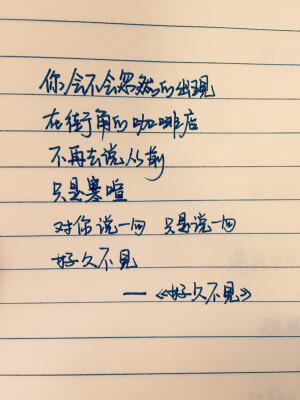 你会不会忽然的出现
在街角的咖啡店
不再去说从前
只是寒喧
对你说一句 只是说一句
好久不见
——《好久不见》